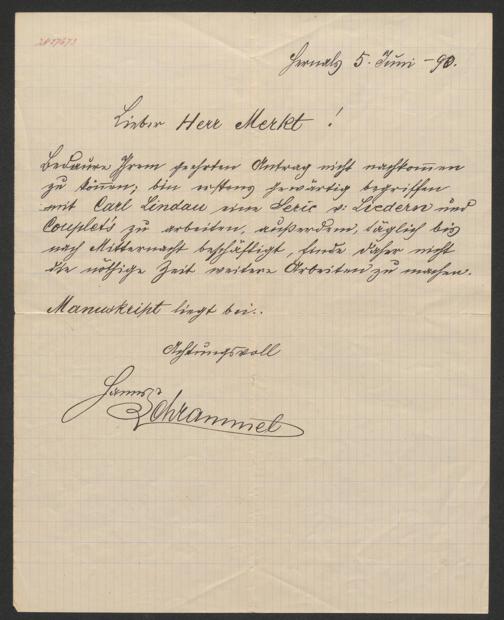 Hernals 5. Juni -90.
Lieber Herr Merkt !
Bedaure Ihrem geehrten Antrag nicht nachkom̅en
zu kön̅en; bin erstens gewärtig begriffen
mit Carl Lindau eine Serie v: Liedern und
Couplets zu arbeiten, außerdem, täglich bis
nach Mitternacht beschäftigt, finde daher nicht
die nöthige Zeit weitere Arbeiten zu machen.
Manuskript liegt bei.
Achtungsvoll
Hanns
Schrammel